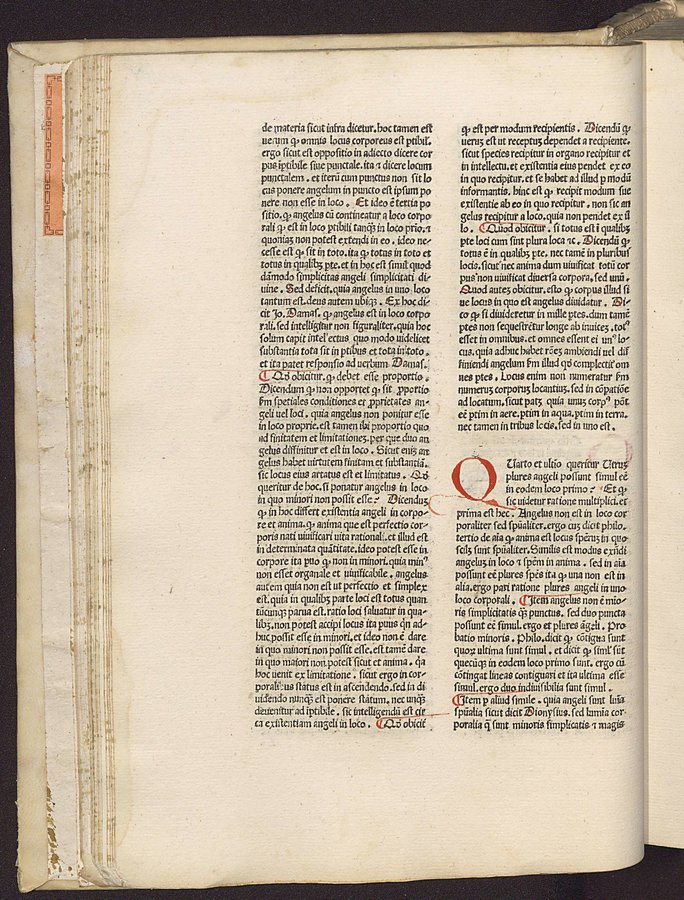 de materia sicut infra dicetur. hoc tamen est
verum ꝙ omnis locus corporeus est ptibil̓.
ergo sicut est oppositio in adiecto dicere cor
pus īptibile siue punctale. ita ⁊ dicere locum
punctalem. et iterū cum punctus non sit lo
cus ponere angelum in puncto est ipsum po
nere non esse in loco. Et ideo ē tertia po
sitio. ꝙ angelus cū contineatur a loco corpo
rali ꝙ est in loco ptibili tanqꝫ in loco prio. ⁊
quoniaꝫ non potest extendi in eo. ideo ne-
cesse est ꝙ sit in toto. ita ꝙ totus in toto et
totus in qualibꝫ pte. et in hoc est simil̓ quod
dāmodo simplicitas angeli simplicitati di
uine. Sed deficit. quia angelus in uno loco
tantum est. deus autem ubiqꝫ. Ex hoc di-
cit Jo. Damas. ꝙ angelus est in loco corpo
rali. sed intelligitur non figuraliter. quia hoc
solum capit intellectus quo modo uidelicet
substantia tota sit in ptibus et tota in toto.
et ita patet responsio ad verbum Damas.
Qđ obicitur. ꝙ debet esse proportio.
Dicendum ꝙ non opportet ꝙ sit ꝓportio
ẜm speciales conditiones et ꝓprietates an-
geli uel loci. quia angelus non ponitur esse
in loco proprie. est tamen ibi proportio quo
ad finitatem et limitationeꝫ. per que duo an
gelus diffinitur et est in loco. Sicut eniꝫ an
gelus habet uirtutem finitam et substantiā.
sic locus eius artatus est et limitatus. Qđ
queritur de hoc. si ponatur angelus in loco
in quo minori non possit esse? Dicenduꝫ
ꝙ in hoc differt existentia angeli in corpo-
re et anima. ꝙ anima que est perfectio cor-
poris nati uiuificari vita rationali. et illud est
in determinata quātitate. ideo potest esse in
corpore ita puo ꝙ non in minori. quia min⁹
non esset organale et uiuificabile. angelus
autem quia non est ut perfectio et simplex
est. quia in qualibꝫ parte loci est totus quan
tūcunqꝫ parua est. ratio loci saluatur in qua-
libꝫ. non potest accipi locus ita puus qn̄ ad-
huc possit esse in minori. et ideo non ē dare
in quo minori non possit esse. est tamē dare
in quo maiori non potest sicut et anima. qa
hoc uenit ex limitatione. sicut ergo in cor-
poralibus status est in ascendendo. sed in di
uidendo nunqꝫ est ponere statum. nec unqꝫ
deuenitur ad īptibile. sic intelligendū est cir
ca existentiam angeli in loco. Qđ obicit̄
ꝙ est per modum recipientis. Dicendū ꝙ
uerum est ut receptuꝫ dependet a recipiente.
sicut species recipitur in organo recipitur et
in intellectu. et existentia eius pendet ex eo
in quo recipitur. et se habet ad illud p modū
informantis. hinc est ꝙ recipit modum sue
existentie ab eo in quo recipitur. non sic an
gelus recipitur a loco. quia non pendet ex il
lo. Quod obicitur. si totus est ī qualibꝫ
pte loci cum sint plura loca ⁊c. Dicendū ꝙ
totus ē in qualibꝫ pte. nec tamē in pluribꝰ
locis. sicut nec anima dum uiuificat totū cor
pus non uiuificat diuersa corpora. sed unū.
Quod auteꝫ obicitur. esto ꝙ corpus illud si
ue locus in quo est angelus diuidatur. Di-
co ꝙ si diuideretur in mille ptes. dum tamē
ptes non sequestrētur longe ab inuiceꝫ. tot⁹
esset in omnibus. et omnes essent ei un⁹ lo-
cus. quia adhuc habet rōeꝫ ambiendi uel dif
finiendi angelum ẜm illud qđ complectit̄ om
nes ptes. Locus enim non numeratur ẜm
numerus corporuꝫ locantiuꝫ. sed in cōpatiōe
ad locatum. sicut patꝫ quia unuꝫ corp⁹ pōt
eē ptim in aere. ptim in aqua. ptim in terra.
nec tamen in tribus locis. sed in uno est.
Quarto et ultīo queritur Utruꝫ
plures angeli possunt simul eē
in eodem loco primo? Et ꝙ
sic uidetur ratione multiplici. et
prima est hec. Angelus non est in loco cor
poraliter sed spūaliter. ergo cuꝫ dicit philo.
tertio de aīa ꝙ anima est locus spēruꝫ in quo
scilꝫ sunt spūaliter. Similis est modus exn̄di
angeluꝫ in loco ⁊ spēm in anima. sed in aīa
possunt eē plures spēs ita ꝙ una non est in
alia. ergo pari ratione plures angeli in uno
loco corporali. Item angelus non ē mio-
ris simplicitatis qꝫ punctus. sed duo puncta
possunt eē simul. ergo et plures āgeli. Pro-
batio minoris. Philo. dicit ꝙ cōtigua sunt
quoꝝ ultima sunt simul. et dicit ꝙ siml̓ sūt
quecūqꝫ in eodem loco primo sunt. ergo cū
cōtingat lineas contiguari et ita ultima esse
simul. ergo duo indiuisibilia sunt simul.
Item p aliud simile. quia angeli sunt lumīa
spūalia sicut dicit Dionysius. sed lumīa cor-
poralia q̄ sunt minoris simplicatis ⁊ magis